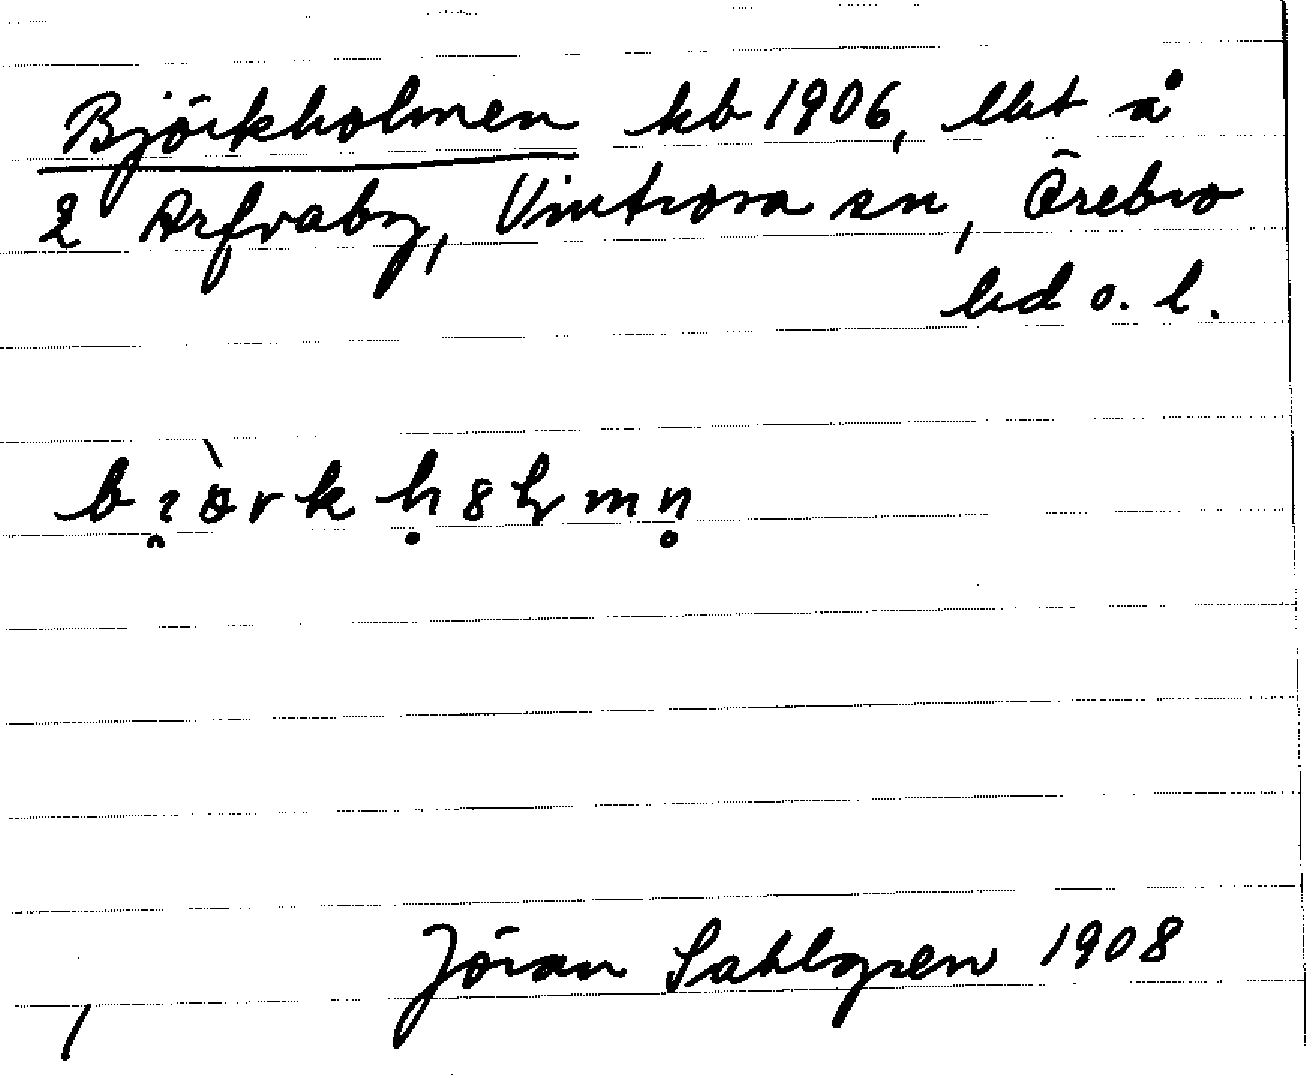 Björkholmen kb 1906, lht å
2 Arfvaby, Vintrosa sn, Örebro
hd o. l.
Jöran Sahlgren 1908